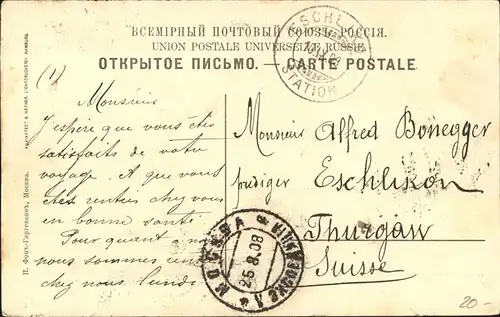 ВСЕМІРНЫЙ ПОЧТОВЫЙ СОЮЗЪ. РОССІЯ.
UNION POSTALE UNIVERSELLE. RUSSIE.
ОТКРЫТОЕ ПИСЬМО. — CARTE POSTALE.
ESCHL
STATION
(1)
Monsieur
J'espère que vous êtes
satisfaits de votre
voyage. A que vous
êtes rentrés chez vous
en bonne santé.
Pour quant à n
nous sommes
chez nous lundi
Monsieur Alfred Bonegger
Eschlikon
Thurgau
Suisse
МОСКВА
25.8.08
П. Фонъ-Гиргенсонъ, Москва.
20-